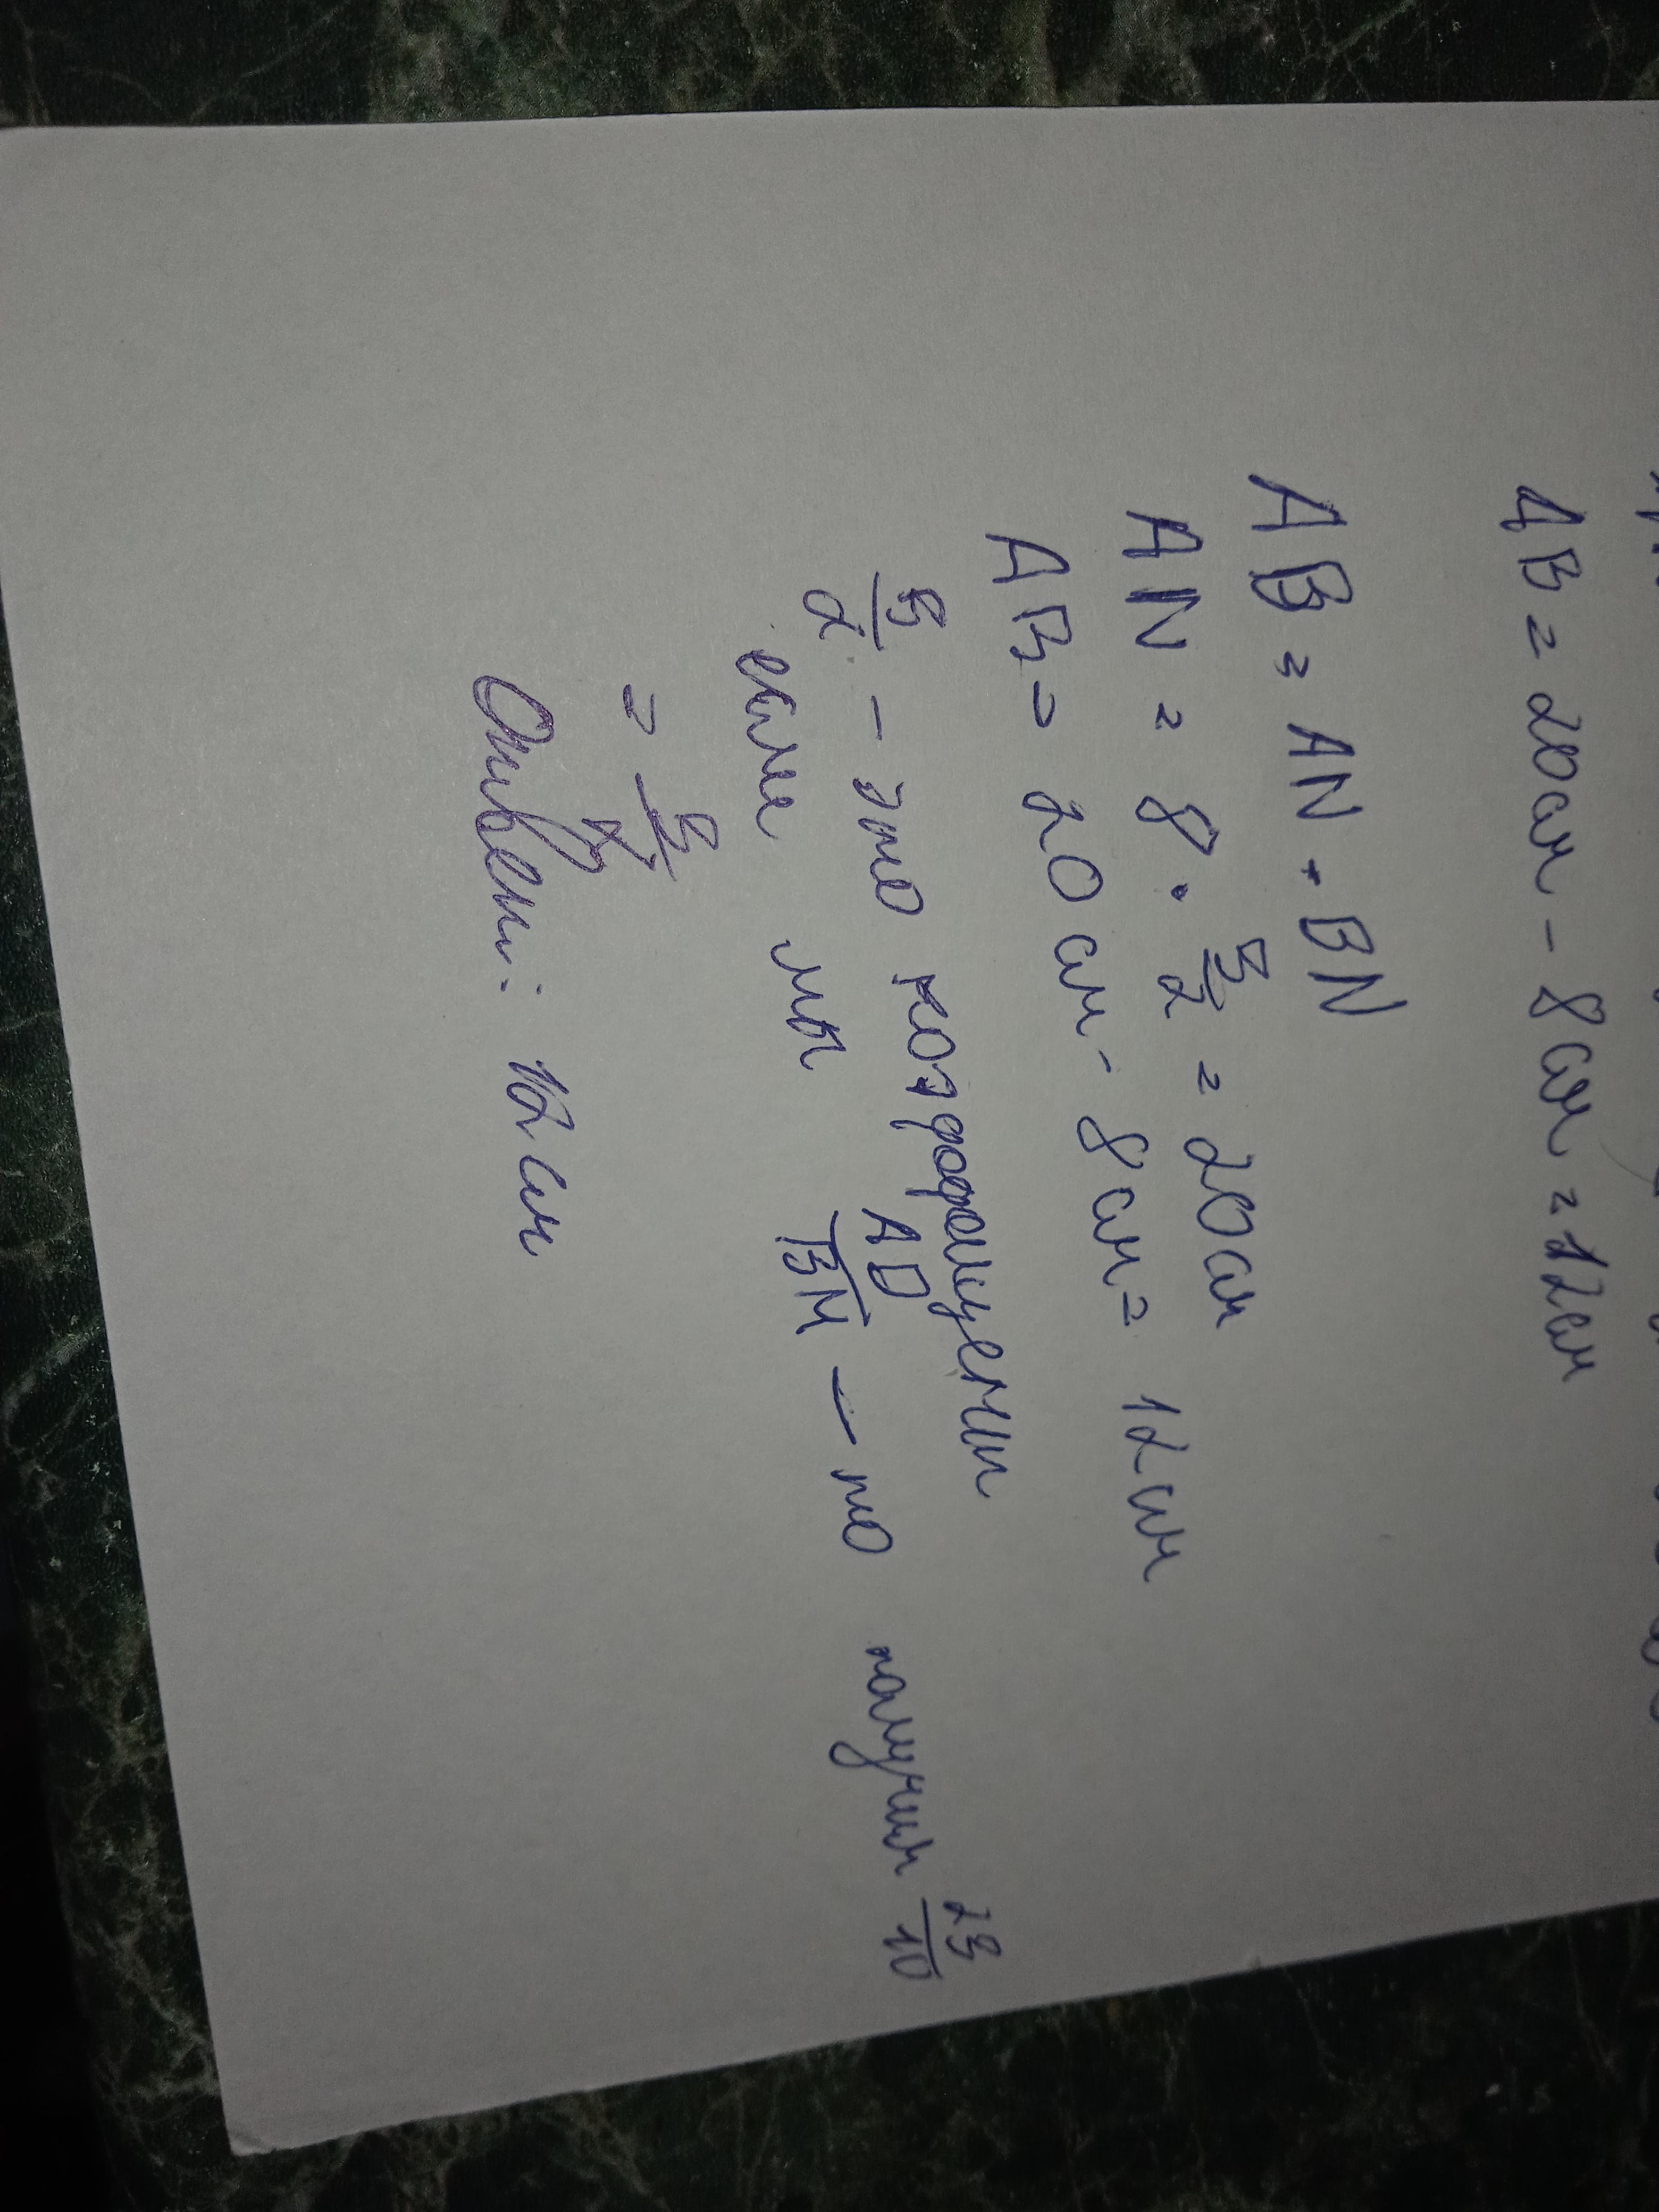 AB = 20см - 8см = 12см
AB = AN - BN
AN = 8 · 5/2 = 20см
AB = 20см - 8см = 12см
5/2 - это коэффициент
если мы AD/BM - то получим 25/10
= 5/2
Ответ: 12см